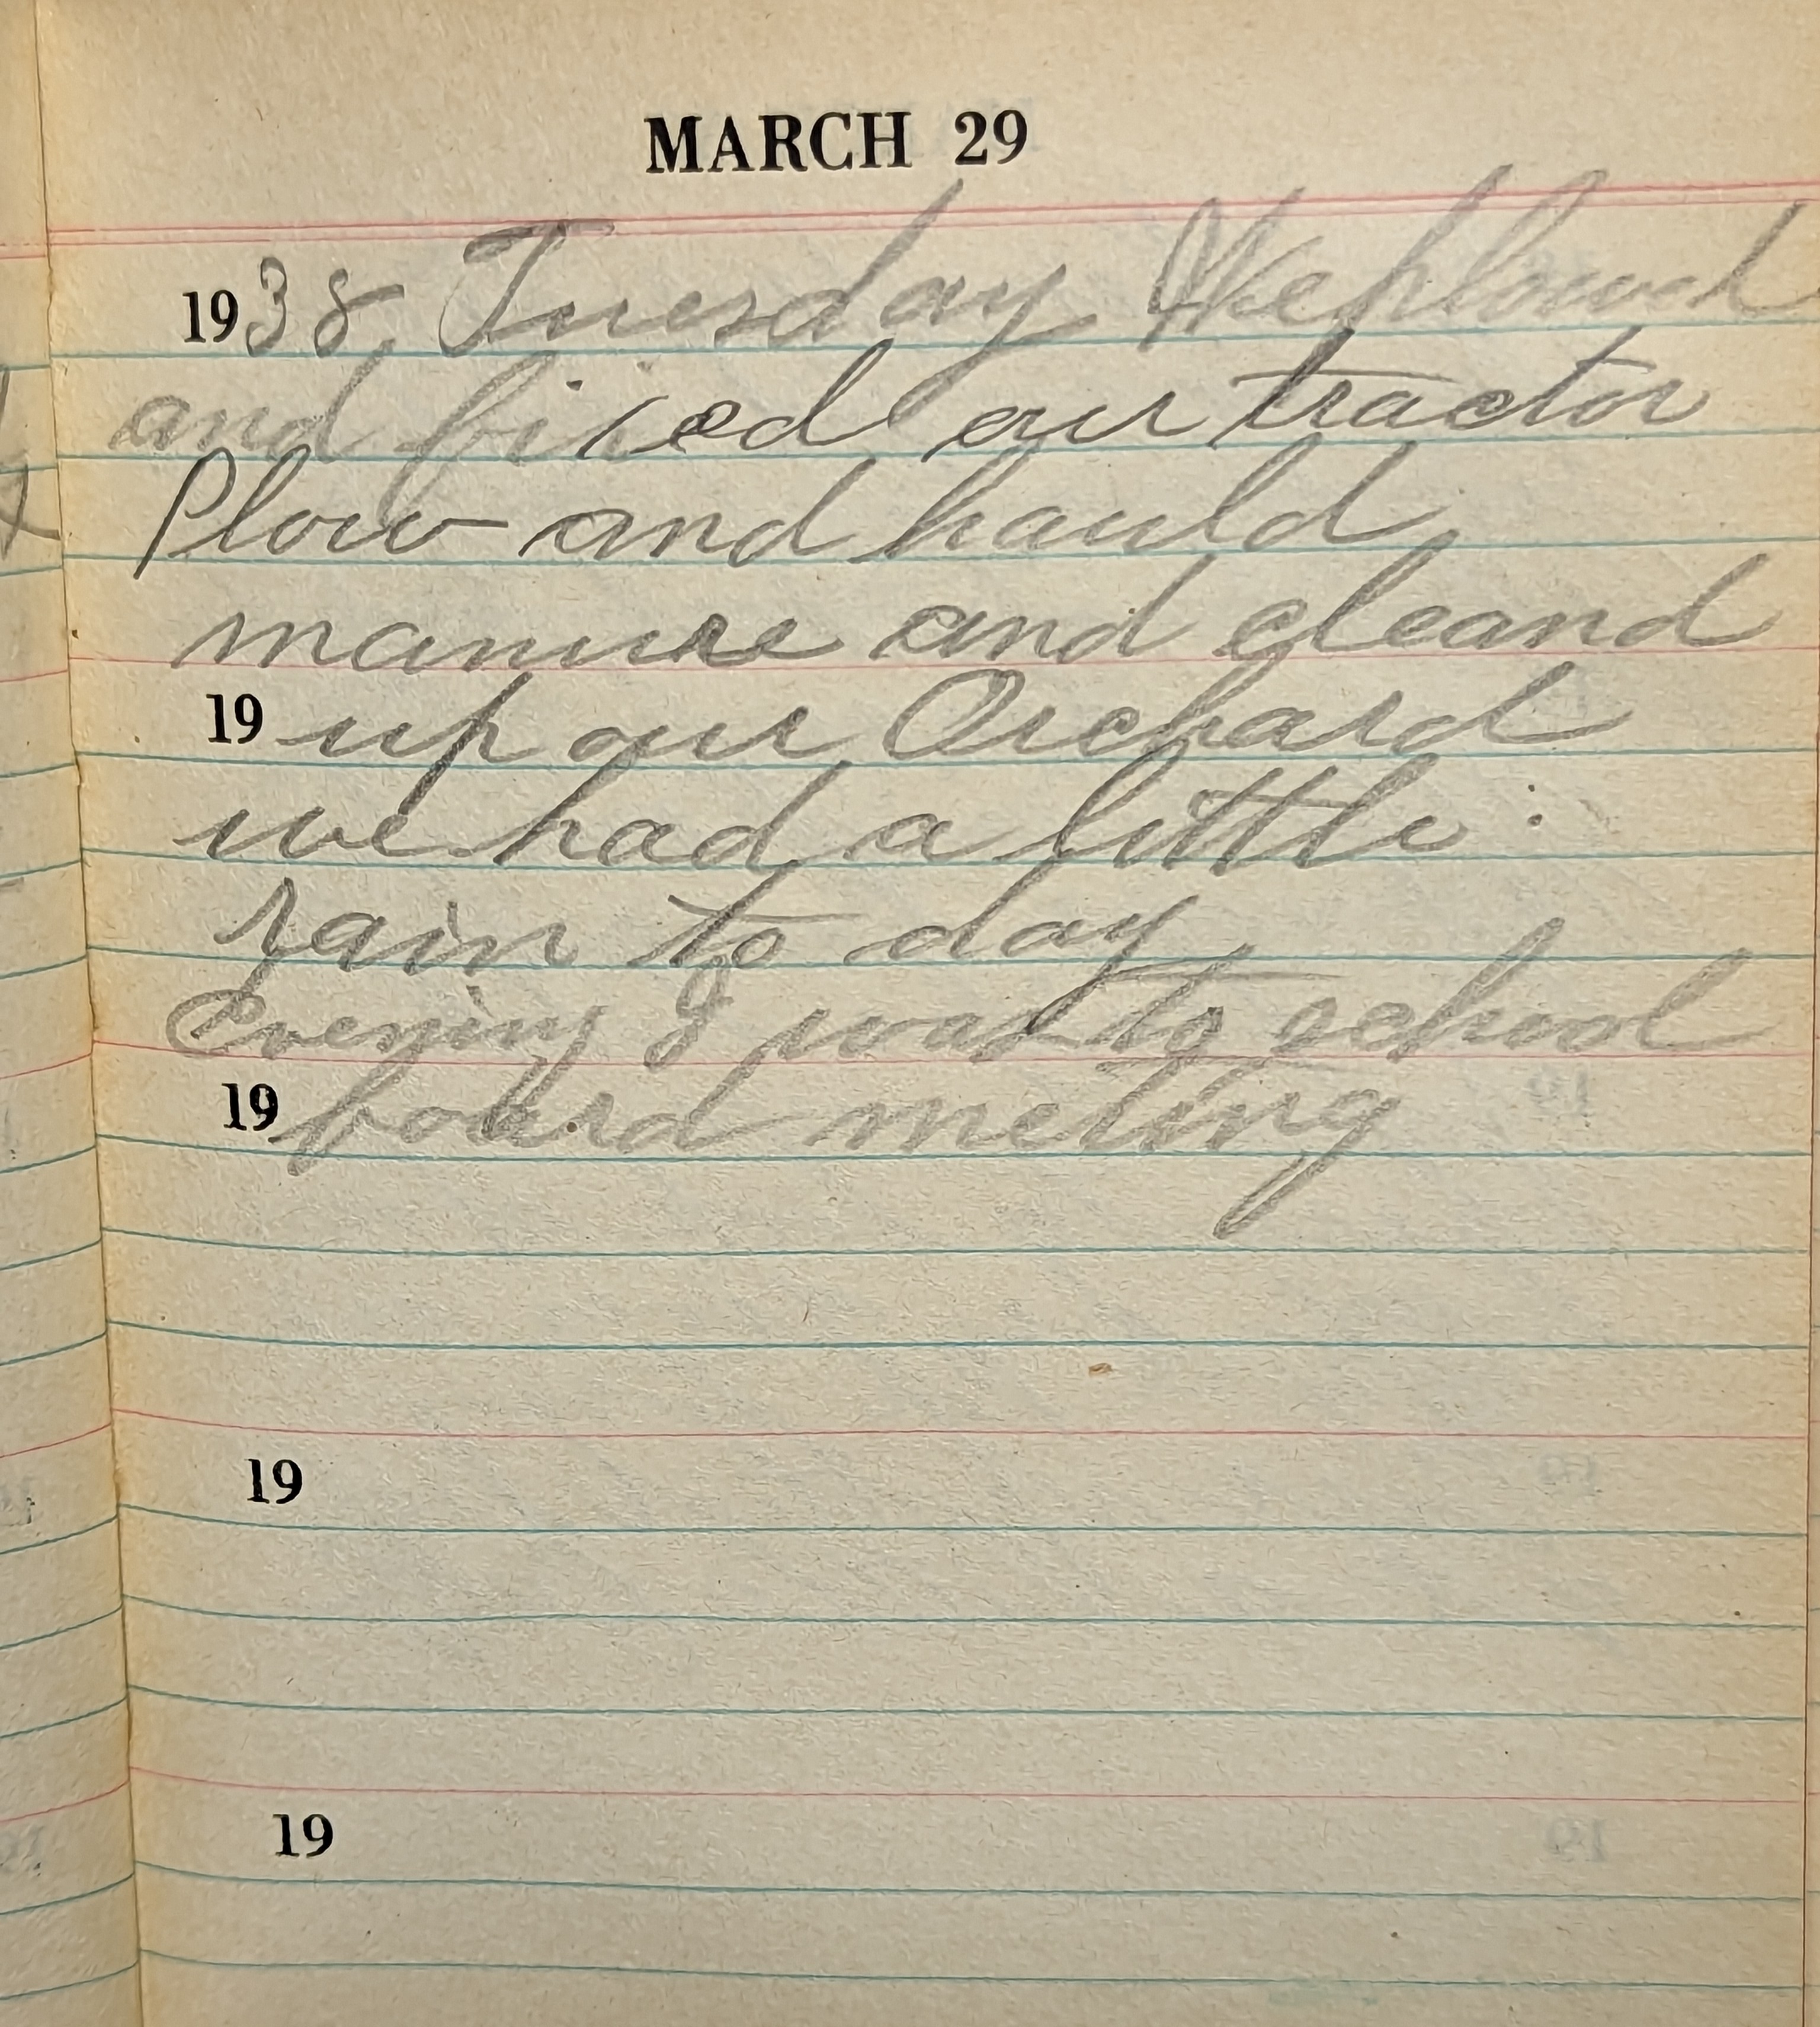 MARCH 29
1938 Tuesday We plowed
and fixed our tractor
Plow and hauld
manure and cleand
19 up our Orchard
we had a little :
rain to day
Evening I was to school
19 board meting
19
19